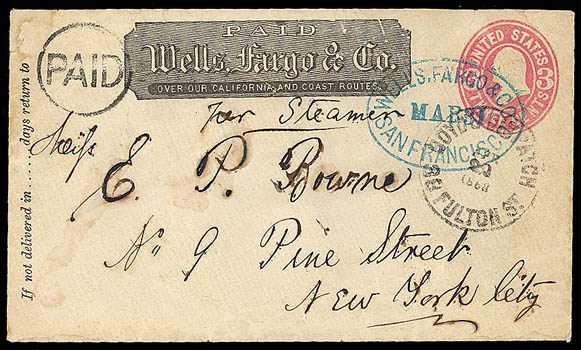 PAID
Wells, Fargo & Co.
OVER OUR CALIFORNIA AND COAST ROUTES.
PAID
UNITED STATES
WELLS, FARGO & CO.
MAR
SAN FRANCISCO
BOYD'S DISPATCH
FULTON ST.
If not delivered in ...... days return to
Per Steamer
Miss
E. P. Bowne
No 9 Pine Street
New York City